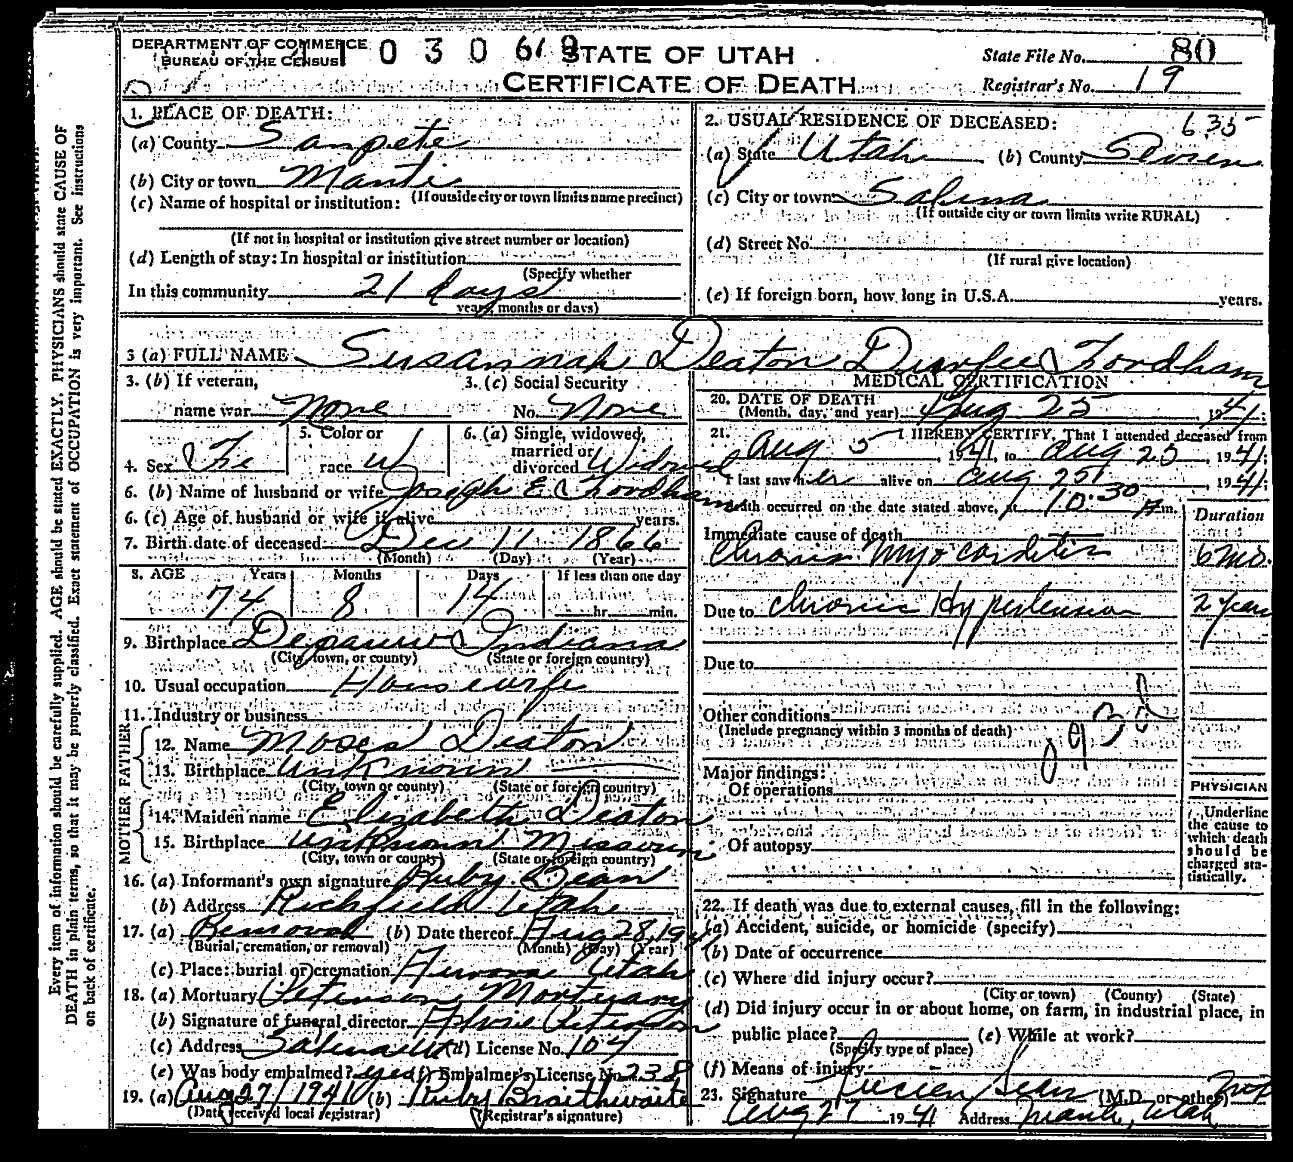 DEPARTMENT OF COMMERCE
BUREAU OF THE CENSUS
0 3 0 6
STATE OF UTAH
CERTIFICATE OF DEATH
State File No. 80
Registrar's No. 19
1. PLACE OF DEATH:
(a) County Sanpete
(b) City or town Manti
(If outside city or town limits name precinct)
(c) Name of hospital or institution:
(If not in hospital or institution give street number or location)
(d) Length of stay: In hospital or institution
(Specify whether
In this community 21 days
years, months or days)
2. USUAL RESIDENCE OF DECEASED: 635
(a) State Utah (b) County Sevier
(c) City or town Salina
(If outside city or town limits write RURAL)
(d) Street No.
(If rural give location)
(e) If foreign born, how long in U.S.A. years.
3 (a) FULL NAME Susannah Deaton Durfee Fordham
3. (b) If veteran, name war None
3. (c) Social Security No. None
4. Sex Fe
5. Color or race W
6. (a) Single, widowed, married or divorced Widowed
6. (b) Name of husband or wife Joseph E. Fordham
6. (c) Age of husband or wife if alive years.
7. Birth date of deceased Dec 11 1866
(Month) (Day) (Year)
8. AGE Years Months Days If less than one day
74 8 14 hr. min.
9. Birthplace Depauw Indiana
(City, town, or county) (State or foreign country)
10. Usual occupation Housewife
11. Industry or business
FATHER
12. Name Moses Deaton
13. Birthplace Unknown
(City, town or county) (State or foreign country)
MOTHER
14. Maiden name Elizabeth Deaton
15. Birthplace Unknown Missouri
(City, town or county) (State or foreign country)
16. (a) Informant's own signature Ruby Bean
(b) Address Richfield Utah
17. (a) Removal (b) Date thereof Aug 28, 194
(Burial, cremation, or removal) (Month) (Day) (Year)
(c) Place: burial or cremation Aurora Utah
18. (a) Mortuary Peterson Mortuary
(b) Signature of funeral director Peterson
(c) Address Salina Ut (d) License No. 104
(e) Was body embalmed? yes (f) Embalmer's License No. 238
19. (a) Aug 27/1941 (b) Ruby Braithwaite
(Date received local registrar) (Registrar's signature)
MEDICAL CERTIFICATION
20. DATE OF DEATH
(Month, day, and year) Aug 25, 1941;
21. I HEREBY CERTIFY, That I attended deceased from
Aug 5, 1941, to Aug 25, 1941;
I last saw her alive on Aug 25, 1941;
death occurred on the date stated above, at 10:30 m.
Duration
Immediate cause of death
Chronic Myocarditis 6 mo.
Due to Chronic Hypertension 2 years
Due to
Other conditions
(Include pregnancy within 3 months of death)
Major findings:
Of operations
Of autopsy
PHYSICIAN
Underline the cause to which death should be charged statistically.
22. If death was due to external causes, fill in the following:
(a) Accident, suicide, or homicide (specify)
(b) Date of occurrence
(c) Where did injury occur?
(City or town) (County) (State)
(d) Did injury occur in or about home, on farm, in industrial place, in
public place? (e) While at work?
(Specify type of place)
(f) Means of injury
23. Signature Lucien Sears (M.D. or other)
Aug 27 1941 Address Manti, Utah
Every item of information should be carefully supplied. AGE should be stated EXACTLY. PHYSICIANS should state CAUSE OF
DEATH in plain terms, so that it may be properly classified. Exact statement of OCCUPATION is very important. See instructions
on back of certificate.